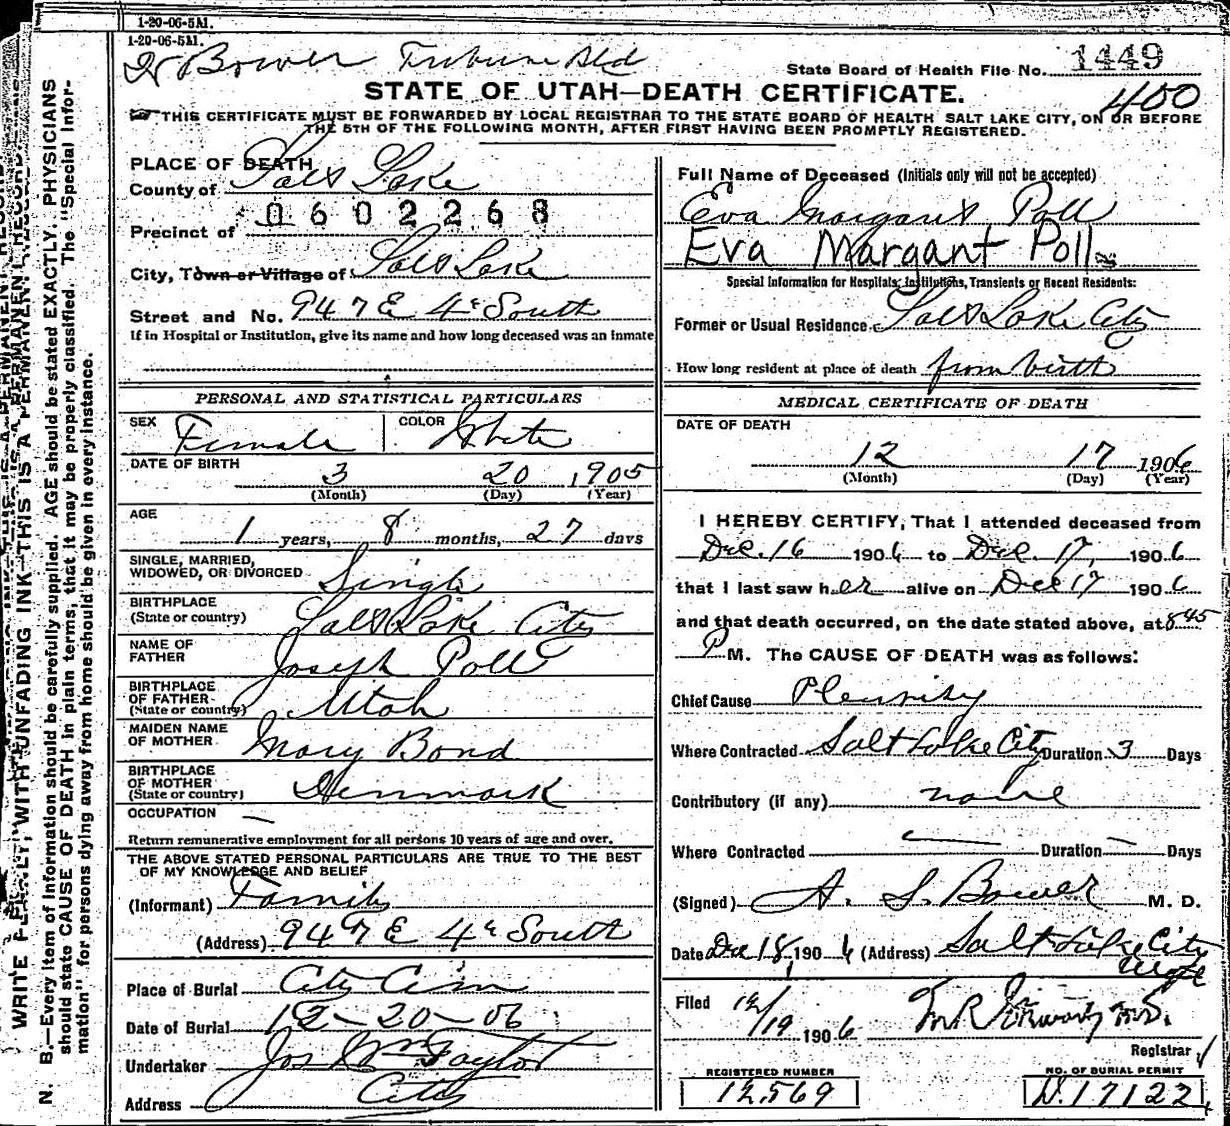 1-20-06-5M.
1-20-06-5M.
Dr Bower Tribune Bld
State Board of Health File No. 1449
STATE OF UTAH—DEATH CERTIFICATE.
400
THIS CERTIFICATE MUST BE FORWARDED BY LOCAL REGISTRAR TO THE STATE BOARD OF HEALTH SALT LAKE CITY, ON OR BEFORE
THE 5TH OF THE FOLLOWING MONTH, AFTER FIRST HAVING BEEN PROMPTLY REGISTERED.
WRITE PLAINLY, WITH UNFADING INK—THIS IS A PERMANENT RECORD
N. B.—Every item of information should be carefully supplied. AGE should be stated EXACTLY. PHYSICIANS
should state CAUSE OF DEATH in plain terms, that it may be properly classified. The "Special Infor-
mation" for persons dying away from home should be given in every instance.
PLACE OF DEATH
County of Salt Lake
0602268
Precinct of
City, Town or Village of Salt Lake
Street and No. 947 E 4th South
If in Hospital or Institution, give its name and how long deceased was an inmate
PERSONAL AND STATISTICAL PARTICULARS
SEX Female COLOR White
DATE OF BIRTH 3 20 1905
(Month) (Day) (Year)
AGE 1 years, 8 months, 27 days
SINGLE, MARRIED,
WIDOWED, OR DIVORCED Single
BIRTHPLACE
(State or country) Salt Lake City
NAME OF
FATHER Joseph Poll
BIRTHPLACE
OF FATHER
(State or country) Utah
MAIDEN NAME
OF MOTHER Mary Bond
BIRTHPLACE
OF MOTHER
(State or country) Denmark
OCCUPATION —
Return remunerative employment for all persons 10 years of age and over.
THE ABOVE STATED PERSONAL PARTICULARS ARE TRUE TO THE BEST
OF MY KNOWLEDGE AND BELIEF
(Informant) Family
(Address) 947 E 4th South
Place of Burial City Cem
Date of Burial 12-20-06
Undertaker Jos Wm Taylor
Address City
Full Name of Deceased (Initials only will not be accepted)
Eva Margaret Poll
Eva Margant Poll
Special Information for Hospitals, Institutions, Transients or Recent Residents:
Former or Usual Residence Salt Lake City
How long resident at place of death from birth
MEDICAL CERTIFICATE OF DEATH
DATE OF DEATH
12 17 1906
(Month) (Day) (Year)
I HEREBY CERTIFY, That I attended deceased from
Dec. 16 1906 to Dec. 17, 1906
that I last saw her alive on Dec 17 1906
and that death occurred, on the date stated above, at 8 45
P M. The CAUSE OF DEATH was as follows:
Chief Cause
Where Contracted Salt Lake City Duration 3 Days
Contributory (if any) none
Where Contracted — Duration — Days
(Signed) A. S. Bower M. D.
Date Dec 18, 1906 (Address) Salt Lake City
Utah
Filed 12/19 1906
Registrar
REGISTERED NUMBER
12,569
NO. OF BURIAL PERMIT
D. 17122